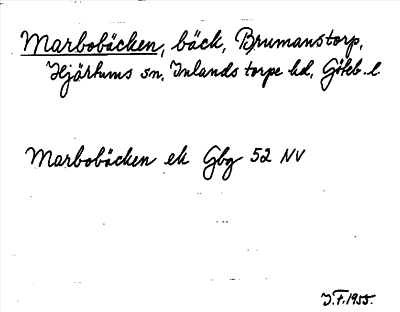 Marbobäcken, bäck, Brumanstorp,
Hjärtums sn, Inlands torpe hd, Göteb. l.
Marbobäcken ek Gbg 52 NV
J.F. 1955.